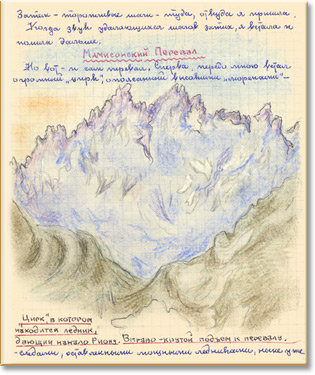 Затем - торопливые шаги - туда, откуда я пришла.
Когда звук удаляющихся шагов затих, я встала и
пошла дальше.
Мамисонский Перевал
Но вот - и сам перевал. Сперва передо мною встал
огромный "цирк", опоясанный висячими "моренами" -
"Цирк" в котором
находится ледник,
дающий начало Риона. Вправо - крутой подъем к перевалу.
- следами, оставленными мощными ледниками, ныне уже